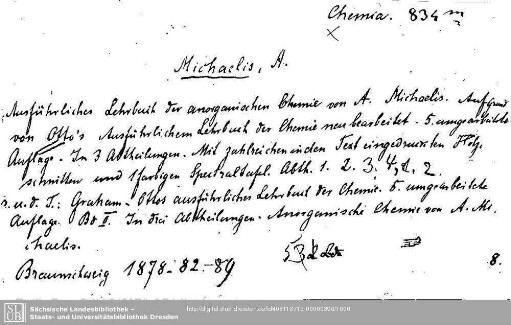 Chemia. 834 m
Michaelis, A.
Ausführliches Lehrbuch der anorganischen Chemie von A. Michaelis. Auf Grund
von Otto's Ausführlichem Lehrbuch der Chemie neu bearbeitet. 5. umgearbeitete
Auflage. In 3 Abtheilungen. Mit zahlreichen in den Text eingedruckten Holz-
schnitten und 1 farbigen Spectraltafel. Abth. 1. 2. 3. 4, 2.
s. u. d. T.: Graham-Ottos ausführliches Lehrbuch der Chemie. 5. umgearbeitete
Auflage. Bd II. In drei Abtheilungen. Anorganische Chemie von A. Mi-
chaelis.
Braunschweig 1878-82-89
8.
Sächsische Landesbibliothek –
Staats- und Universitätsbibliothek Dresden